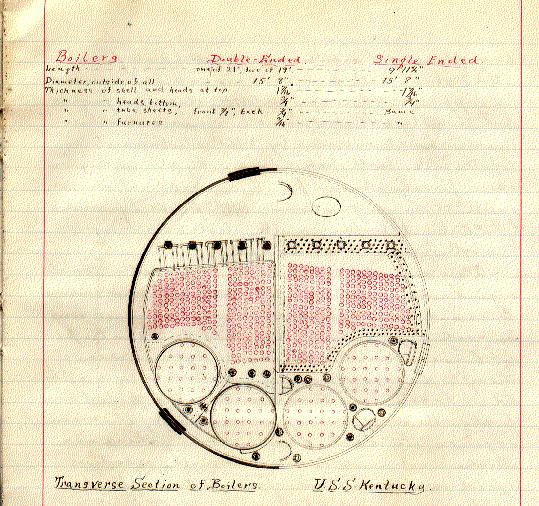 Boilers Double-Ended Single Ended
Length one of 21', two of 19' 9' 11¾"
Diameter, outside of all 15' 8" 15' 8"
Thickness of shell and heads at top
" " heads, bottom, ¾"
" " tube sheets, front ¾", back ¾" same
" " furnaces "
Transverse Section of Boilers. U.S.S Kentucky.